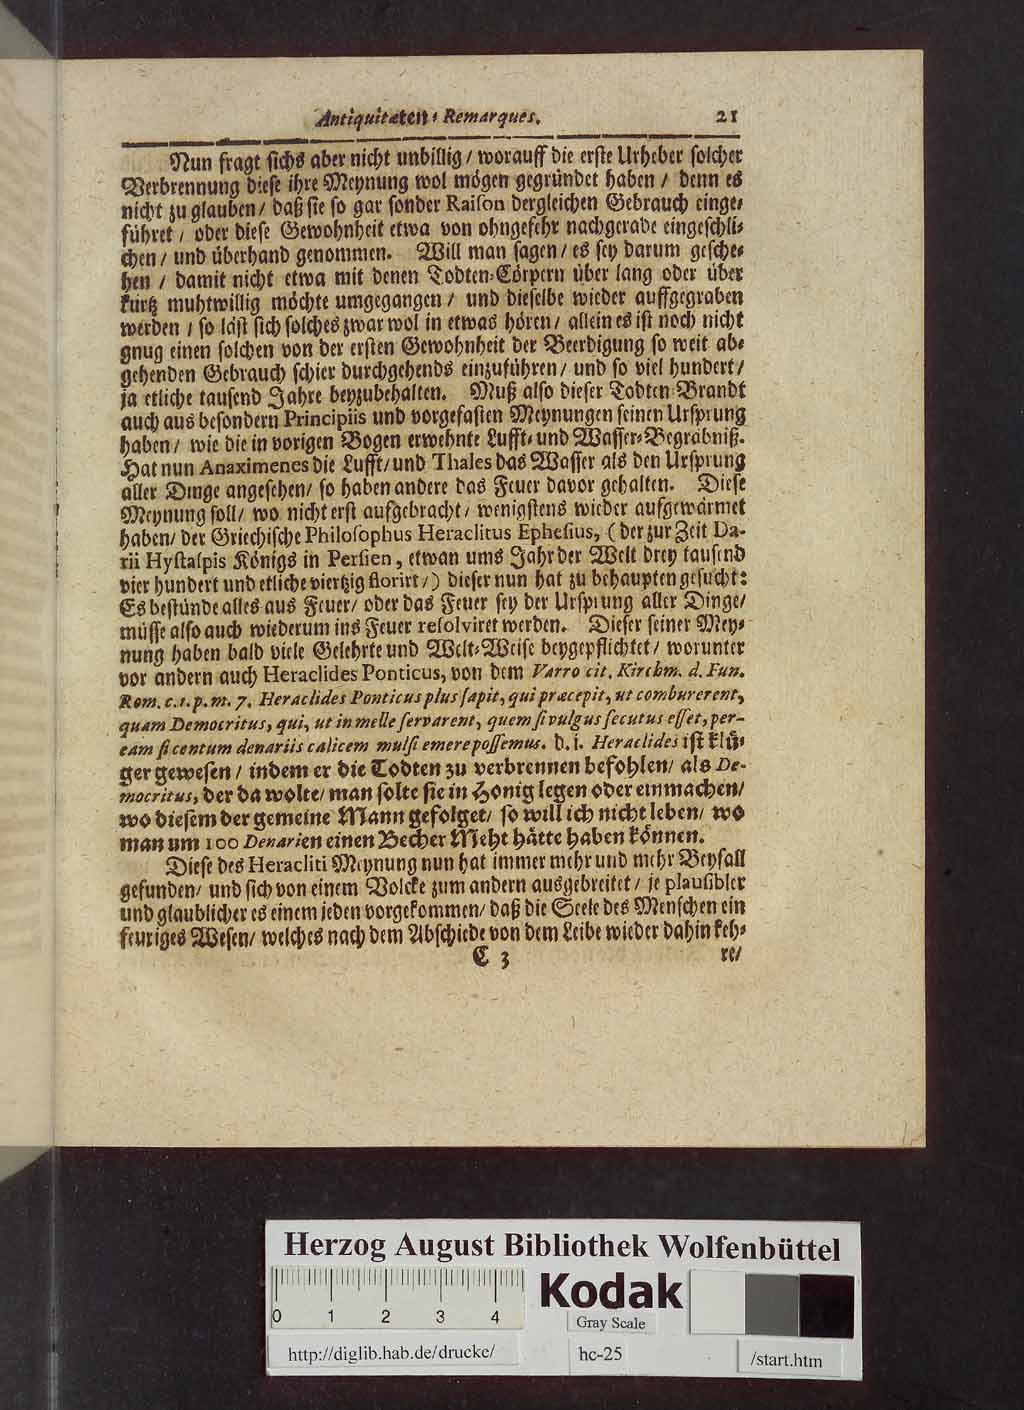 Antiquitæten-Remarques. 21
Nun fragt sichs aber nicht unbillig / worauff die erste Urheber solcher
Verbrennung diese ihre Meynung wol mögen gegründet haben / denn es
nicht zu glauben / daß sie so gar sonder Raison dergleichen Gebrauch einge-
führet / oder diese Gewohnheit etwa von ohngefehr nachgerade eingeschli-
chen / und überhand genommen. Will man sagen / es sey darum gesche-
hen / damit nicht etwa mit denen Todten-Cörpern über lang oder über
kurtz muhtwillig möchte umgegangen / und dieselbe wieder auffgegraben
werden / so läst sich solches zwar wol in etwas hören / allein es ist noch nicht
gnug einen solchen von der ersten Gewohnheit der Beerdigung so weit ab-
gehenden Gebrauch schier durchgehends einzuführen / und so viel hundert /
ja etliche tausend Jahre beyzubehalten. Muß also dieser Todten-Brandt
auch aus besondern Principiis und vorgefasten Meynungen seinen Ursprung
haben / wie die in vorigen Bogen erwehnte Lufft- und Wasser-Begräbniß.
Hat nun Anaximenes die Lufft / und Thales das Wasser als den Ursprung
aller Dinge angesehen / so haben andere das Feuer davor gehalten. Diese
Meynung soll / wo nicht erst aufgebracht / wenigstens wieder aufgewärmet
haben / der Griechische Philosophus Heraclitus Ephesius, ( der zur Zeit Da-
rii Hystaspis Königs in Persien, etwan ums Jahr der Welt drey tausend
vier hundert und etliche viertzig florirt /) dieser nun hat zu behaupten gesucht:
Es bestünde alles aus Feuer / oder das Feuer sey der Ursprung aller Dinge /
müsse also auch wiederum ins Feuer resolviret werden. Dieser seiner Mey-
nung haben bald viele Gelehrte und Welt-Weise beygepflichtet / worunter
vor andern auch Heraclides Ponticus, von dem Varro cit. Kirchm. d. Fun.
Rom. c.1. p. m. 7. Heraclides Ponticus plus sapit, qui præcepit, ut comburerent,
quam Democritus, qui, ut in melle servarent, quem si vulgus secutus esset, per-
eam si centum denariis calicem mulsi emere possemus. d. i. Heraclides ist klü-
ger gewesen / indem er die Todten zu verbrennen befohlen / als De-
mocritus, der da wolte / man solte sie in Honig legen oder einmachen /
wo diesem der gemeine Mann gefolget / so will ich nicht leben / wo
man um 100 Denarien einen Becher Meht hätte haben können.
Diese des Heracliti Meynung nun hat immer mehr und mehr Beyfall
gefunden / und sich von einem Volcke zum andern ausgebreitet / je plausibler
und glaublicher es einem jeden vorgekommen / daß die Seele des Menschen ein
feuriges Wesen / welches nach dem Abschiede von dem Leibe wieder dahin keh-
C 3 re /
Herzog August Bibliothek Wolfenbüttel
0 1 2 3 4
Kodak
Gray Scale
http://diglib.hab.de/drucke/
hc-25
/start.htm